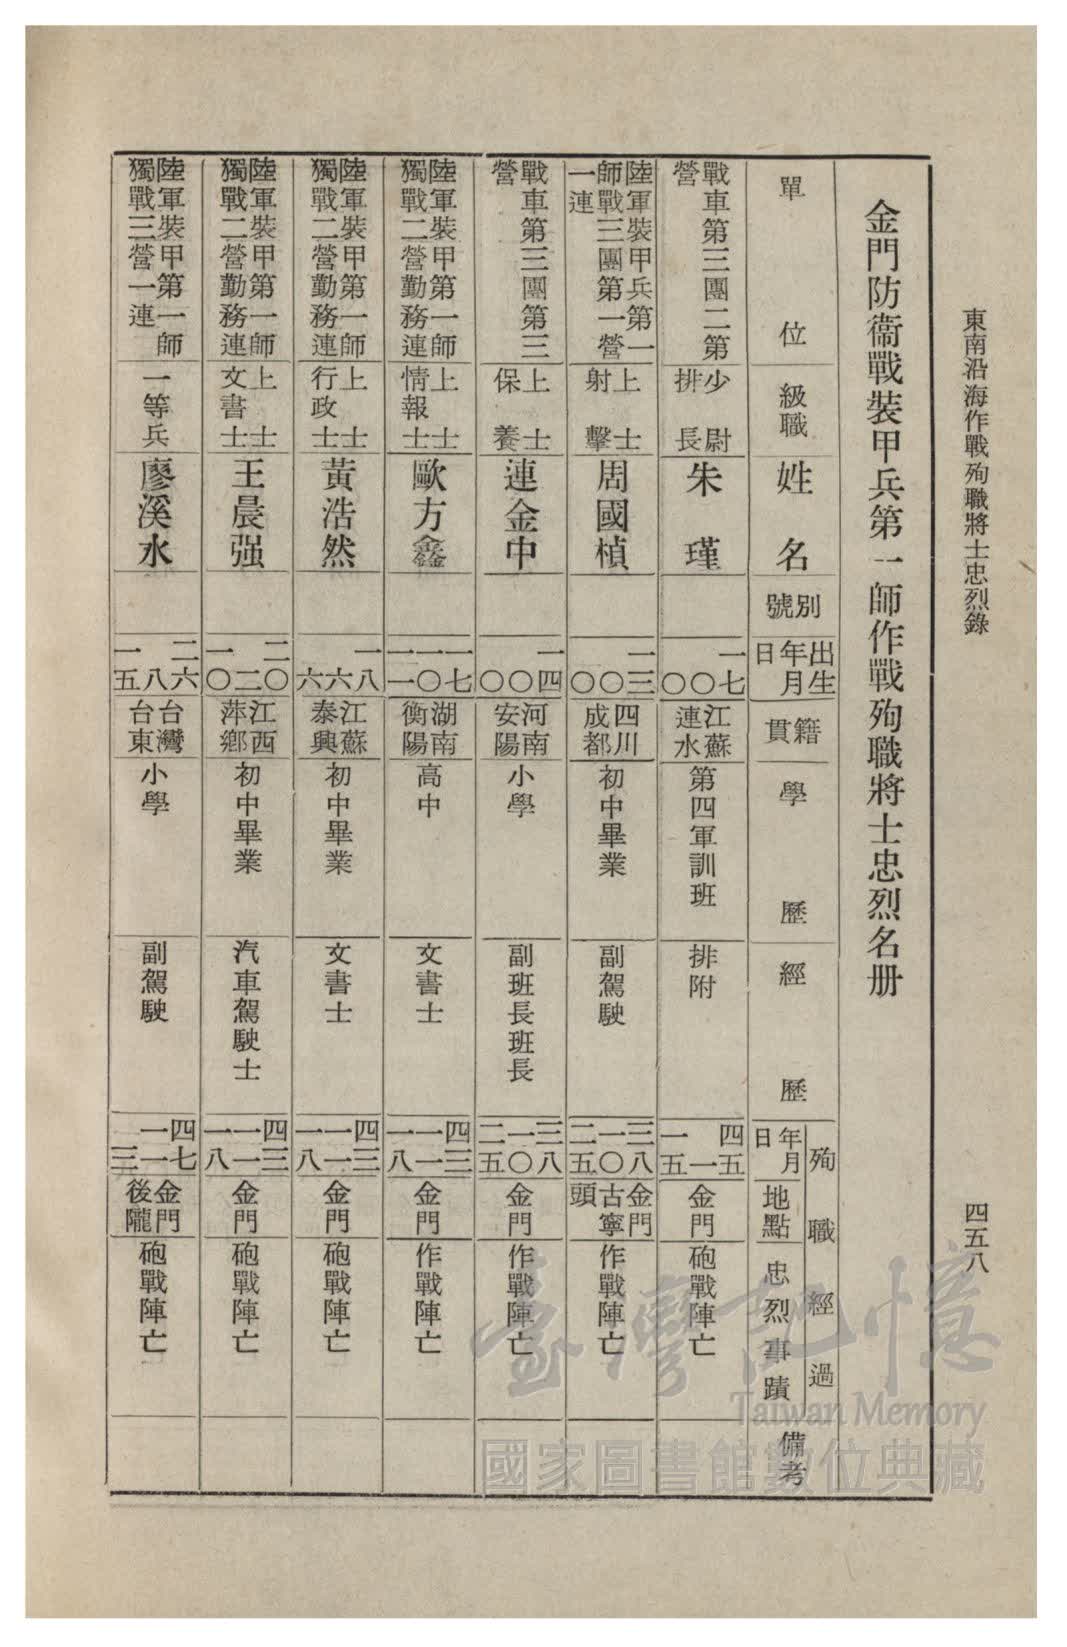 東南沿海作戰殉職將士忠烈錄
四五八
金門防衞戰裝甲兵第一師作戰殉職將士忠烈名册
單位
級職
姓名
別號
出生
年月
日
籍貫
學歷
經歷
殉職經過
年月
日
地點
忠烈事蹟
備考
戰車第三團二第
營
少尉
排長
朱瑾
一七
〇
〇
江蘇
連水
第四軍訓班
排附
四五
一
一五
金門
砲戰陣亡
陸軍裝甲兵第一
師戰三團第一營
一連
上士
射擊
周國楨
一三
〇
〇
四川
成都
初中畢業
副駕駛
三八
一〇
二五
金門
古寧
頭
作戰陣亡
戰車第三團第三
營
上士
保養
連金中
一四
〇
〇
河南
安陽
小學
副班長班長
三八
一〇
二五
金門
作戰陣亡
陸軍裝甲第一師
獨戰二營勤務連
上士
情報士
歐方鑫
一七
一〇
一一
湖南
衡陽
高中
文書士
四三
一一
一八
金門
作戰陣亡
陸軍裝甲第一師
獨戰二營勤務連
上士
行政士
黃浩然
一八
六
六
江蘇
泰興
初中畢業
文書士
四三
一一
一八
金門
砲戰陣亡
陸軍裝甲第一師
獨戰二營勤務連
上士
文書士
王晨强
二〇
二
一〇
江西
萍鄉
初中畢業
汽車駕駛士
四三
一一
一八
金門
砲戰陣亡
陸軍裝甲第一師
獨戰三營一連
一等兵
廖溪水
二六
八
一五
台灣
台東
小學
副駕駛
四七
一一
三
金門
後隴
砲戰陣亡
臺灣記憶
Taiwan Memory
國家圖書館數位典藏